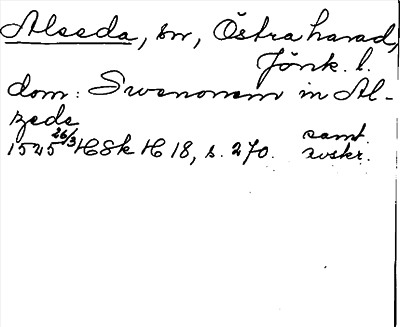 Alseda, sn, Östra härad,
Jönk. l.
dom: Swenonem in Al-
zeda
1525 26/3 HSk H 18, s. 270. samt.
avskr.